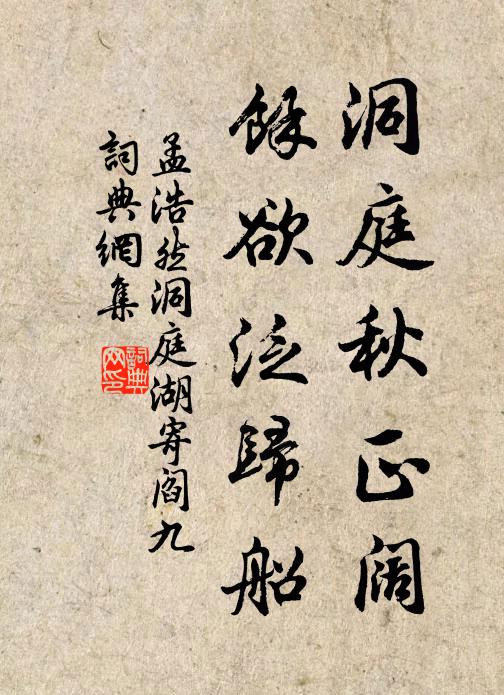 洞庭秋正阔
餘欲泛歸船
孟浩然洞庭湖寄閻九
詞典網集
詞典
网印